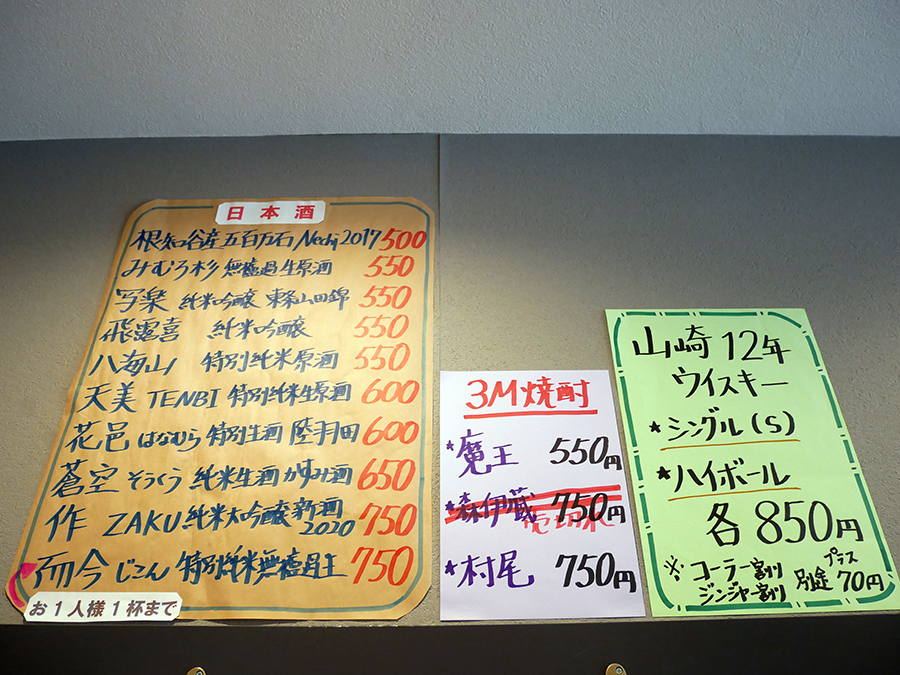 日本酒
根知谷産五百万石 Nechi 2017 500
みむろ杉 無濾過生原酒 550
写楽 純米吟醸 東条山田錦 550
飛露喜 純米吟醸 550
八海山 特別純米原酒 550
天美 TENBI 特別純米生原酒 600
花邑 はなむら 特別生酒 陸羽田 600
蒼空 そうくう 純米生酒 かすみ酒 650
作 ZAKU 純米大吟醸 新酒 2020 750
而今 じこん 特別純米無濾過生 750
お1人様1杯まで
3M焼酎
★魔王 550円
★森伊蔵 750円
売切れ
★村尾 750円
山崎12年
ウイスキー
★シングル(S)
★ハイボール
各850円
※コーラー割り
ジンジャー割り
別途プラス70円